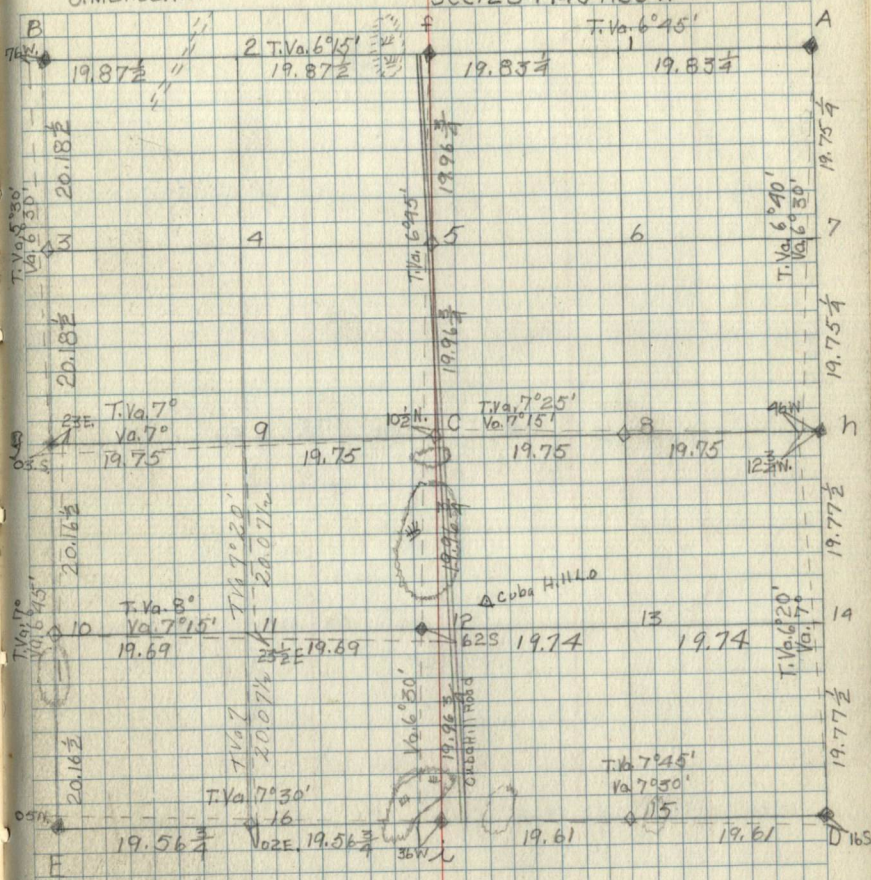 B
f
T.Va. 6°45'
A
76W.
2 T.Va. 6°15'
1
19.87½ 19.87½ 19.83¼ 19.83¼
20.18½
19.96¾
19.75¼
T.Va. 5°30'
Va. 6°30'
T.Va. 6°45'
T.Va. 6°40'
Va. 6°30'
3 4 5 6 7
20.18½
19.96¾
19.75¼
23E.
T.Va. 7°
Va. 7°
9
10½N. C
T.Va. 7°25'
Va. 7°15'
8
46W
h
03.S.
19.75 19.75 19.75 19.75
12¾W.
20.16½
T.Va 7°20'
20.07½
19.96¾
19.77½
Cuba Hill L.O
T.Va. 7°
Va. 6°45'
10
T.Va. 8°
Va. 7°15'
11
12
13
14
19.69
25½E
19.69
62S
19.74 19.74
T.Va. 6°20'
Va. 7°
20.16½
T.Va 7
20.07½
Va. 6°30'
19.96¾
Cuba Hill Road
19.77½
T.Va. 7°30'
T.Va. 7°45'
Va 7°30'
05N.
16
15
19.56¾
02E.
19.56¾
36W
i
19.61 19.61
D
16S
E